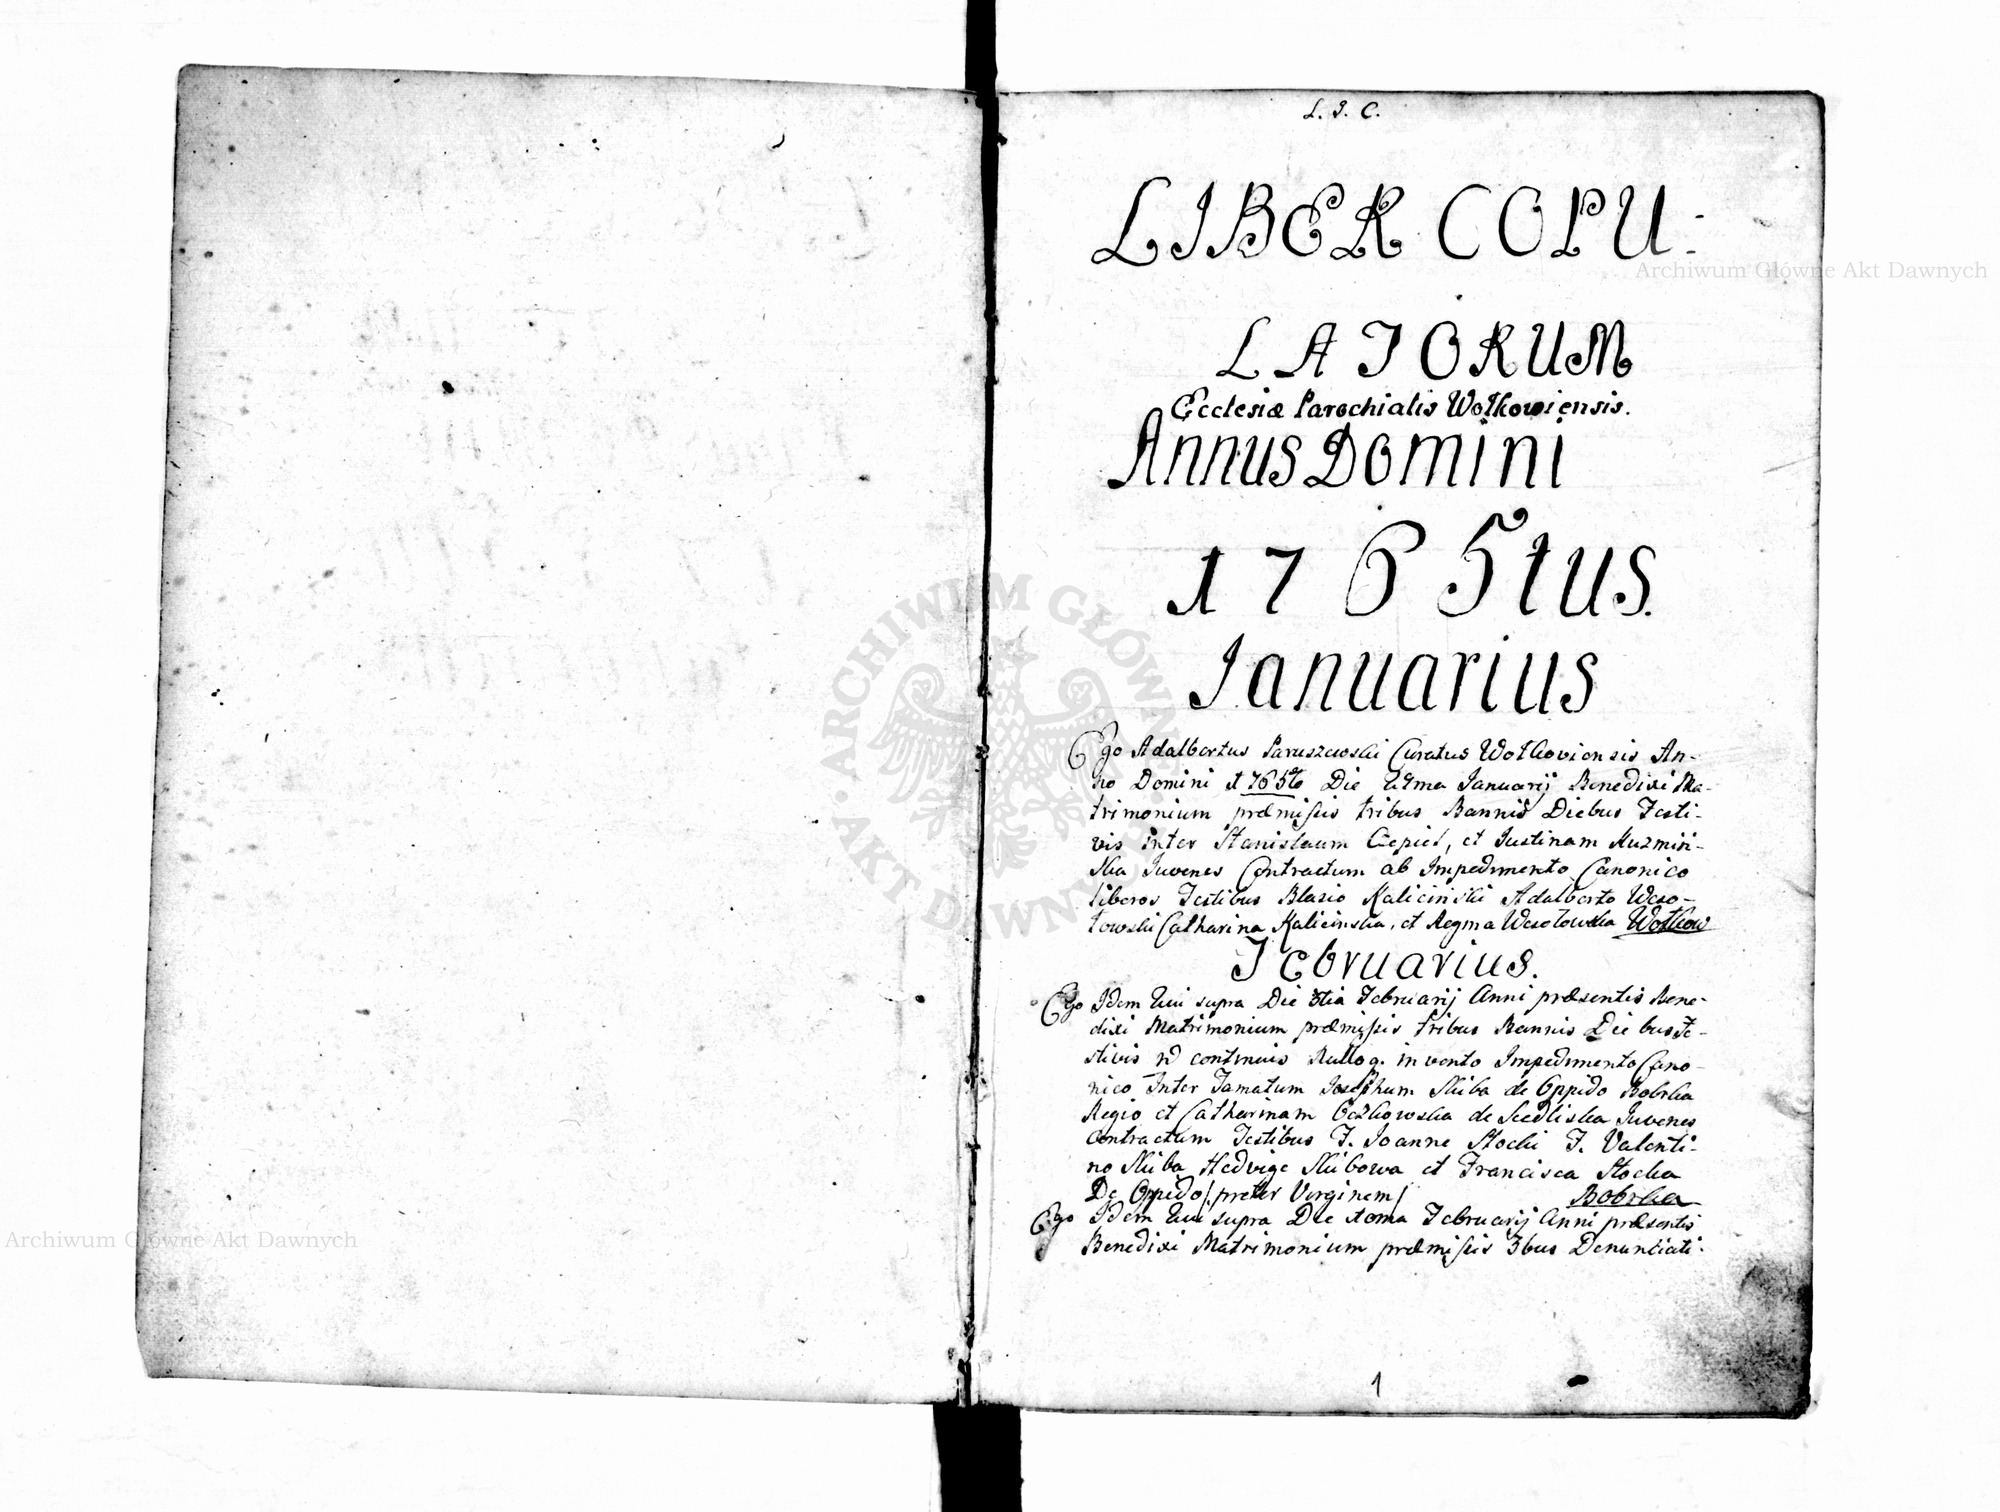 L. J. C.
LIBER COPU:
LATORUM
Ecclesiæ Parochialis Wołkowiensis.
Annus Domini
1765tus.
Ianuarius
Ego Adalbertus Paruszewski Curatus Wołkoviensis An-
no Domini 1765to Die Januarij Benedixi Ma-
trimonium præmissis tribus Bannis Diebus Festi-
vis inter Stanislaum Czepiel, et Justinam Kuzmiń-
ska Juvenes Contractum ab Impedimento Canonico
liberos Testibus Blasio Kalicinski Adalberto Weso-
łowski Catharina Kalicinska, et Regina Wesołowska Wołkow
Februarius.
Ego Idem Qui supra Die 3tia Februarij Anni præsentis Bene-
dixi Matrimonium præmissis tribus Bannis Diebus Fe-
stivis continuis Nulloq. invento Impedimento Cano-
nico Inter Famatum Josephum Skiba de Oppido Bobrka
Regio et Catharinam Oczkowska de Siedliska Juvenes
Contractum Testibus F. Joanne Stocki F. Valenti-
no Skiba Hedvige Skibowa et Francisca Stocka
De Oppido /: preter Virginem / Bobrka
Ego Idem Qui supra Die Februarij Anni præsentis
Benedixi Matrimonium præmissis 3bus Denuntiati-
1
ARCHIWUM GŁÓWNE AKT DAWNYCH
Archiwum Główne Akt Dawnych
Archiwum Główne Akt Dawnych